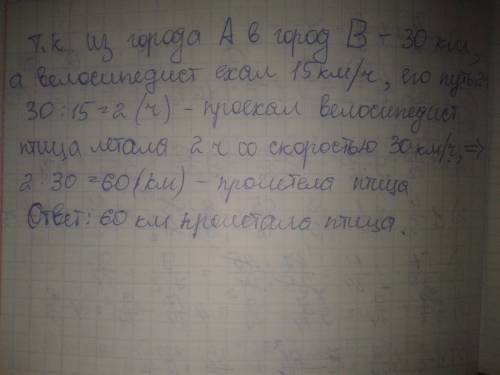 Т.к. из города А в город В - 30 км,
а велосипедист ехал 15 км/ч, его путь
30 : 15 = 2 (ч) - проехал велосипедист
птица летала 2 ч со скоростью 30 км/ч, =>
2 · 30 = 60 (км) - пролетела птица
Ответ: 60 км пролетала птица.